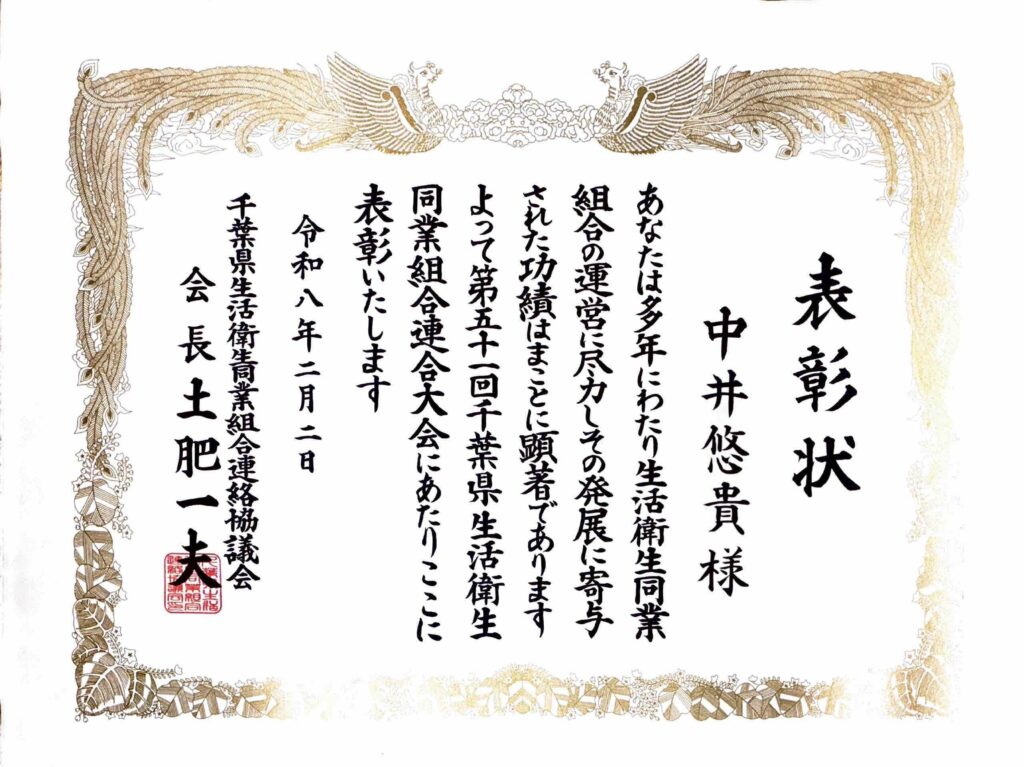 表彰状
中井悠貴様
あなたは多年にわたり生活衛生同業
組合の運営に尽力しその発展に寄与
された功績はまことに顕著であります
よって第五十一回千葉県生活衛生
同業組合連合大会にあたりここに
表彰いたします
令和八年二月二日
千葉県生活衛生同業組合連絡協議会
会長土肥一夫